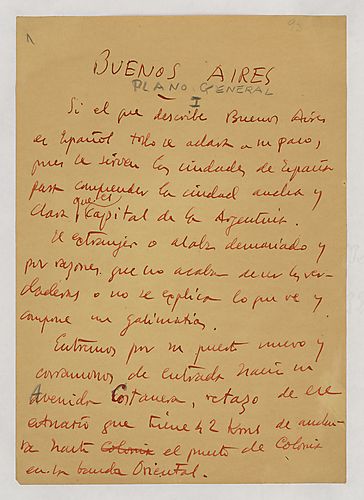 BUENOS AIRES
PLANO GENERAL
I
Si el que describe Buenos Aires
es Español todo se aclara a su paso,
pues le sirven las ciudades de España
para comprender la ciudad ancha y
clara que es Capital de la Argentina.
El extranjero o alaba demasiado y
por razones que no acaban de ser las ver-
daderas o no se explica lo que ve y
compone un galimatías.
Entremos por su puerto nuevo y
corramonos de entrada hacia su
Avenida Costanera, retazo de ese
estuario que tiene 42 kms de anchu-
ra hasta Colonia el puerto de Colonia
en la banda Oriental.